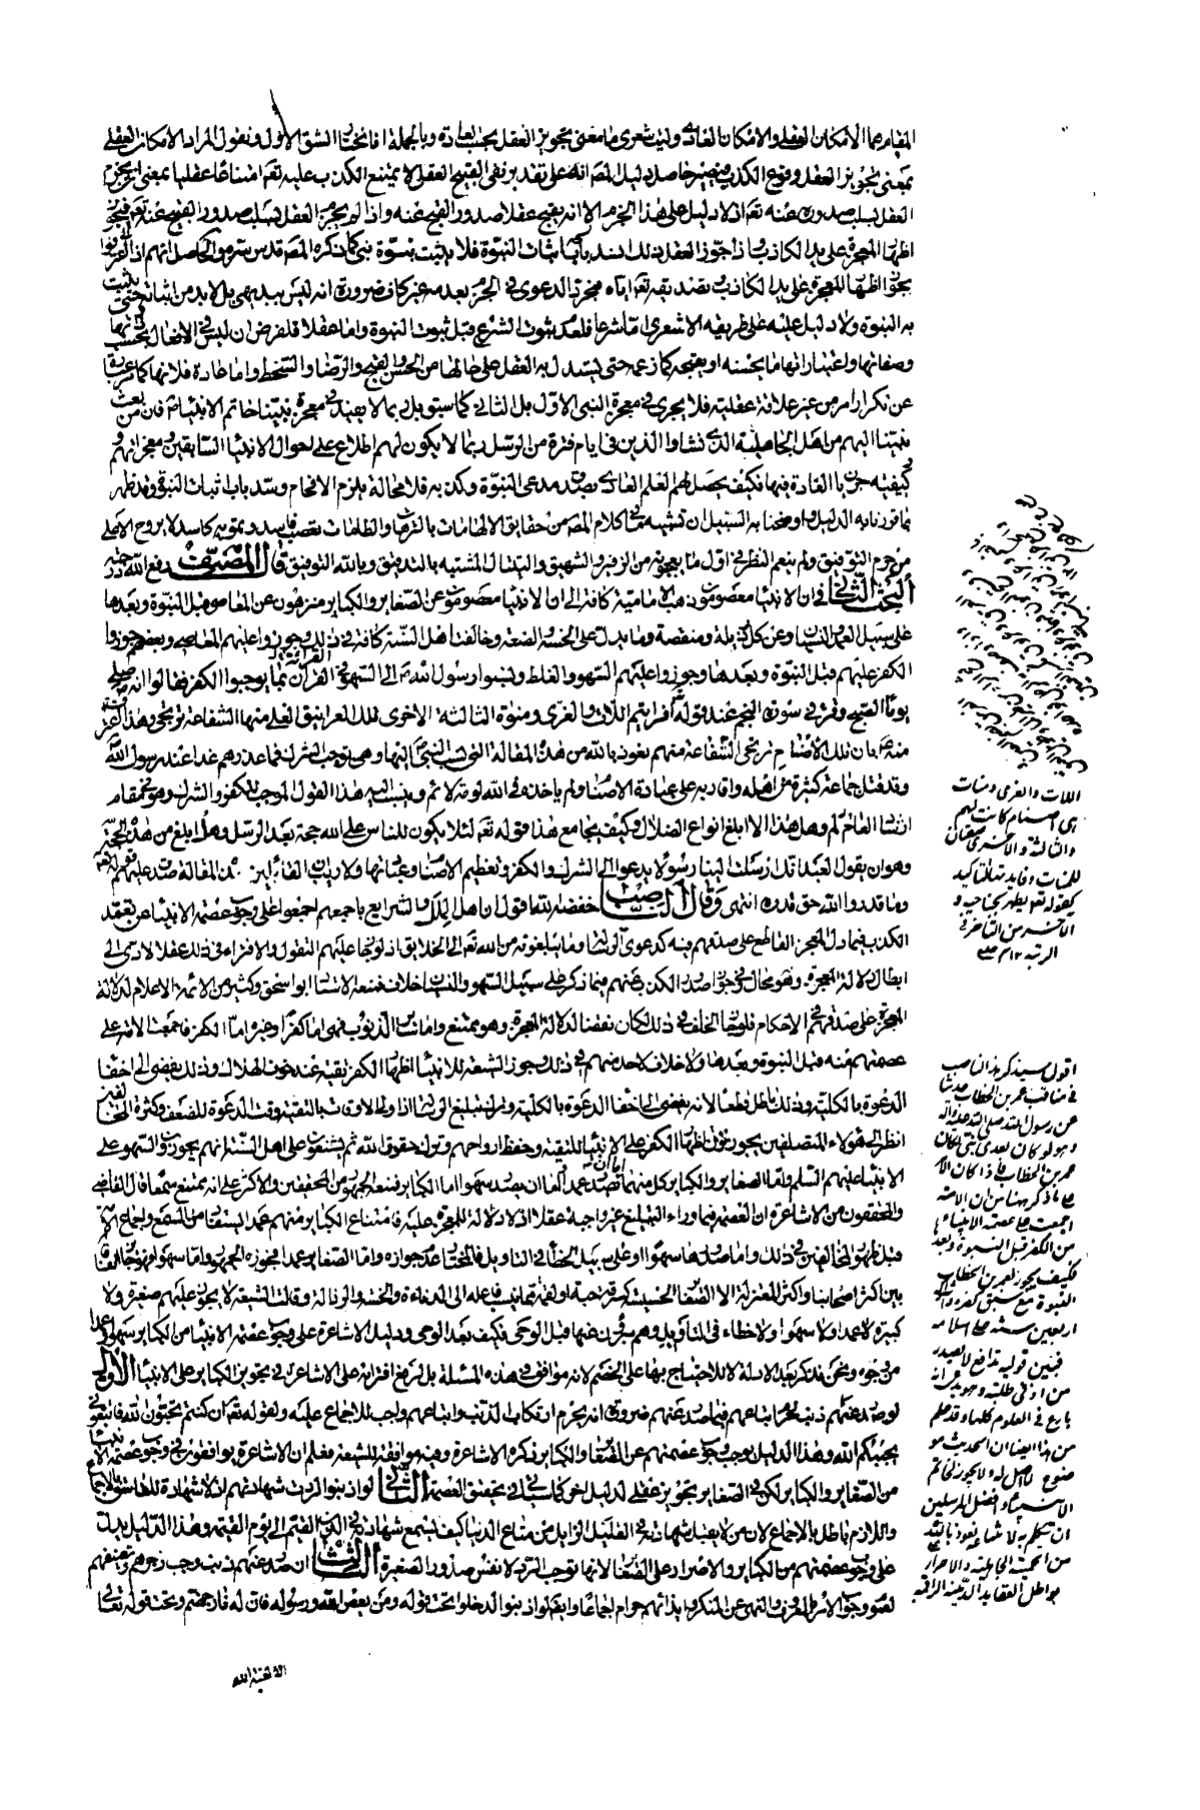 المقام هما الامكان العقلي والامكان العادي وليت شعري ما معنى تجويز العقل بحسب العادة وبالجملة انا نختار الشق الاول ونقول المراد الامكان العقلي
بمعنى تجويز العقل وقوع الكذب فيصير حاصل دليل المصنف انه على تقدير نفي القبح العقلي لا يمتنع الكذب عليه تعالى امتناعا عقليا بمعنى يجزم
العقل بسلب صدوره عنه تعالى اذ لا دليل على هذا الجزم الا انه يقبح عقلا صدور القبح عنه واذا لم يجزم العقل بسلب صدور القبح عنه تعالى فيجوز
اظهار المعجزة على يد الكاذب واذا جوز العقل ذلك انسد باب اثبات النبوة فلا يثبت نبوة نبي كما ذكره المصنف قدس سره والحاصل انهم اذا
يجوز اظهار المعجزة على يد الكاذب تصديقه تعالى اياه معجزة الدعوى في الجزم بعدمه غير كاف ضرورة انه ليس ببديهي بل لا بد من اثباته حتى يثبت
به النبوة ولا دليل عليه على طريقة الاشعري اما شرعا فلعدم ثبوت الشرع قبل ثبوت النبوة واما عقلا فلفرض ان ليس في الافعال بحسب
وصفاتها واعتباراتها ما يحسنه او يقبحه كما زعمه حتى يستدل به العقل على حالها من الحسن والقبح والرضا والسخط واما عادة فلانها كما عرفت
عن تكرار امر من غير علاقة عقلية فلا يجري في معجزة النبي الاول بل الثاني كما سبق بل بما لا يفيد في معجزة نبينا خاتم الانبياء فان من بعث
نبينا اليهم من اهل الجاهلية الذين نشاوا في ايام فترة من الرسل ربما لا يكون لهم اطلاع على احوال الانبياء السابقين ومعجزاتهم و
كيفية جريان العادة فيها فكيف يحصل لهم العلم العادي بصدق مدعي النبوة وكذبه فلا محالة يلزم الافحام وسد باب اثبات النبوة وقد ظهر
بما قررنا به الدليل واوضحنا به السبيل ان تشبيه كلام المصنف من حقايق الالهامات بالترهات والطامات تعصب فاسد وتمويه كاسد لا يروج الا على
من حرم التوفيق ولم ينعم النظر في اول ما يعجزه من الزفير والشهيق والتمثال المشتبه بالتدقيق وبالله التوفيق قال المصنف رفع الله درجته
البحث الثاني في ان الانبياء معصومون ذهب الامامية كافة الى ان الانبياء معصومون عن الصغاير والكباير منزهون عن المعاصي قبل النبوة وبعدها
على سبيل العمد والنسيان وعن كل رذيلة ومنقصة وما يدل على الخسة والضعة وخالفت اهل السنة كافة في ذلك وجوزوا عليهم المعاصي وبعضهم جوزوا
الكفر عليهم قبل النبوة وبعدها وجوزوا عليهم السهو والغلط ونسبوا رسول الله ص الى السهو في القرآن بما يوجب الكفر فقالوا انه صلى
يوما الصبح وقرء في سورة النجم عند قوله تعالى افرايتم اللات والعزى ومنوة الثالثة الاخرى تلك الغرانيق العلى منها الشفاعة ترتجى وهذا
منه ص بان تلك الاصنام ترتجى الشفاعة منهم نعوذ بالله من هذه المقالة التي نسب النبي اليها وهي توجب الشرك فما عذرهم غدا عند رسول الله
وقد قتل جماعة كثيرة من اهله واقاربه على عبادة الاصنام ولم ياخذه في الله لومة لائم وينسب اليه هذا القول الموجب للكفر والشرك وهو في مقام
ارشاد العالم وهل هذا الا ابلغ انواع الضلال وكيف يجامع هذا قوله تعالى لئلا يكون للناس على الله حجة بعد الرسل وهل ابلغ من هذه الحجة
وهو ان يقول العبد انك ارسلت الينا رسولا يدعو الى الشرك والكفر وتعظيم الاصنام وعبادتها ولا ريب ان القائلين بهذه المقالة صدق عليهم قوله تعالى
وما قدروا الله حق قدره انتهى وقال الناصب خفضه الله اقول ان اهل الملل والشرايع باجمعهم اجمعوا على وجوب عصمة الانبياء عن تعمد
الكذب فيما دل المعجز القاطع على صدقهم فيه كدعوى الرسالة وما يبلغونه من الله تعالى الى الخلايق اذ لو جاز عليهم التقول والافتراء في ذلك عقلا لادى الى
ابطال دلالة المعجزة وهو محال وفي جواز صدور الكذب عنهم فيما ذكر على سبيل السهو والنسيان خلاف فمنعه الاستاد ابو اسحق وكثير من الائمة الاعلام لدلالة
المعجزة على صدقهم في الاحكام فلو جاز الخلف في ذلك لكان نقضا لدلالة المعجزة وهو ممتنع واما ساير الذنوب فهي اما كفر او غيره اما الكفر فاجمعت الامة على
عصمتهم منه قبل النبوة وبعدها ولا خلاف لاحد منهم في ذلك وجوز الشيعة للانبياء اظهار الكفر تقية عند خوف الهلاك وذلك يفضي الى اخفاء
الدعوة بالكلية وذلك باطل قطعا لانه يفضي الى اخفاء الدعوة بالكلية وترك تبليغ الرسالة اذ اولى الاوقات بالتقية وقت الدعوة للضعف وكثرة المخالفين
انظر الى هؤلاء المتصلفين يجوزون اظهار الكفر على الانبياء للتقية وحفظ ارواحهم وترك حقوق الله ثم يشنعون على اهل السنة انهم يجوزون السهو على
الانبياء عليهم السلام واما الصغاير والكباير كل منهما اما ان يصدر عمدا واما ان يصدر سهوا اما الكباير فمنعه الجمهور من المحققين والاكثر على انه يمتنع سمعا قال القاضي
والمحققون من الاشاعرة ان العصمة فيما وراء التبليغ غير واجبة عقلا اذ لا دلالة للمعجزة عليه فامتناع الكباير منهم عمدا مستفاد من السمع واجماع الامة
قبل ظهور المخالفين في ذلك واما صدورها سهوا او على سبيل الخطأ في التاويل فالمختار عدم جوازه واما الصغاير عمدا فجوزه الجمهور واما سهوا فهو جايز اتفاقا
بين اكثر اصحابنا واكثر المعتزلة الا الصغاير الخسيسة كسرقة حبة او لقمة مما ينسب فاعله الى الدناءة والخسة والرذالة وقالت الشيعة لا يجوز عليهم صغيرة ولا
كبيرة لا عمدا ولا سهوا ولا خطاء في التاويل وهم مبرؤن عنها قبل الوحي فكيف بعد الوحي ودليل الاشاعرة على وجوب عصمة الانبياء من الكباير سهوا وعمدا
من وجوه ونحن نذكر بعض الادلة لا للاحتجاج بها على الخصم لانه موافق في هذه المسئلة بل لرفع افترائه على الاشاعرة في تجويز الكباير على الانبياء الاول
لو صدر عنهم ذنب لحرم اتباعهم فيما صدر عنهم ضرورة انه يحرم ارتكاب الذنب واتباعهم واجب للاجماع عليه ولقوله تعالى ان كنتم تحبون الله فاتبعوني
يحببكم الله وهذا الدليل يوجب وجوب عصمتهم عن الصغاير والكباير ذكره الاشاعرة وفيه موافقة للشيعة فعلم ان الاشاعرة يوافقون في وجوب عصمة الانبياء
من الصغاير والكباير لكن في الصغاير تجويز عقلي لدليل اخر كما سياتي في تحقيق العصمة الثاني لو اذنبوا لردت شهادتهم اذ لا شهادة للفاسق بالاجماع
واللازم باطل بالاجماع لان من لا يقبل شهادته في القليل الزايل من متاع الدنيا كيف يسمع شهادته في الدين القيم الى يوم القيمة وهذا الدليل يدل
على وجوب عصمتهم من الكباير والاصرار على الصغاير لانها توجب الرد لا نفس صدور الصغيرة الثالث ان صدر عنهم ذنب وجب زجرهم وتعنيفهم
لعموم وجوب الامر بالمعروف والنهي عن المنكر وايذائهم حرام اجماعا وايضا لو اذنبوا لدخلوا تحت قوله ومن يعص الله ورسوله فان له نار جهنم وتحت قوله تعالى
اللات والعزى ومنات
هي اصنام كانت لهم
والثالثة والاخرى صفتان
للمنات وفايدتهما التاكيد
كقوله تعالى يطير بجناحيه و
الاخرى من التاخر في
الرتبة ١٢ منه
اقول سيذكر هذا الناصب
في مناقب عمر بن الخطاب حديثا
عن رسول الله صلى الله عليه واله
وهو لو كان بعدي نبي لكان
عمر بن الخطاب فاذا كان الامر
على ما ذكر هيهنا من ان الامة
اجمعت على عصمة الانبياء
من الكفر قبل النبوة وبعد
فكيف يجوز لعمر بن الخطاب
النبوة مع سبق كفره
اربعين سنة على اسلامه
فبين قوليه تدافع لا يصدر
من ادنى طلبة وهو يدعي انه
بارع في العلوم كلها وقد علم
من هذا ايضا ان الحديث مو
ضوع لا اصل له ولا يجوز لخاتم
الانبياء وافضل المرسلين
ان يتكلم به لا شاعة نعوذ بالله
من الحمية الجاهلية والاصرار
على بواطل العقايد الدنية الزائفة
الا لعنة الله